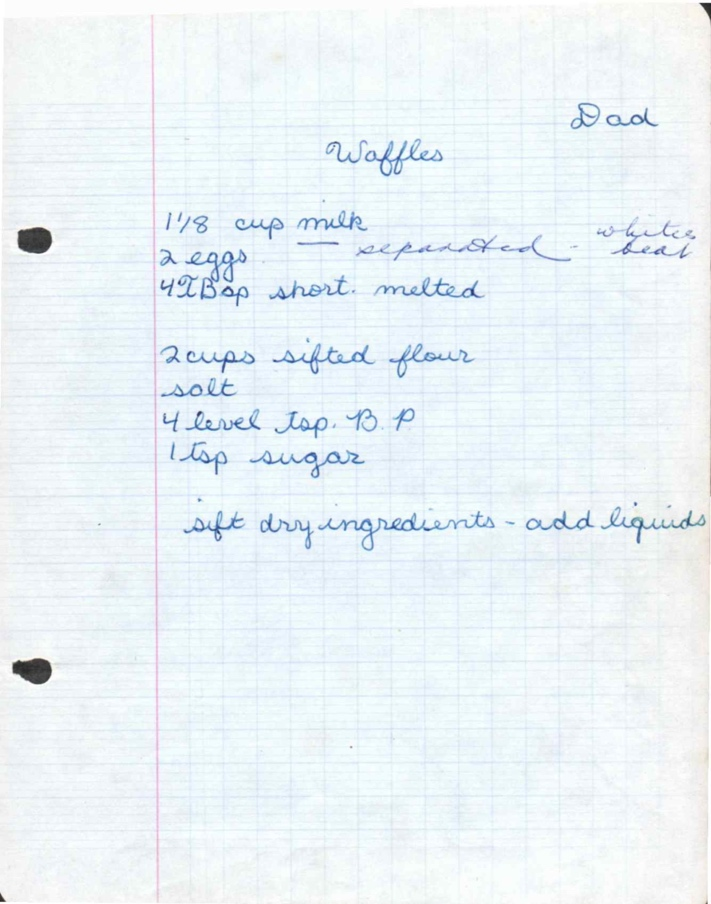 Dad
Waffles
1 1/8 cup milk
2 eggs — separated - whites beat
4 TBsp short. melted
2 cups sifted flour
salt
4 level tsp. B.P.
1 tsp sugar
sift dry ingredients - add liquids